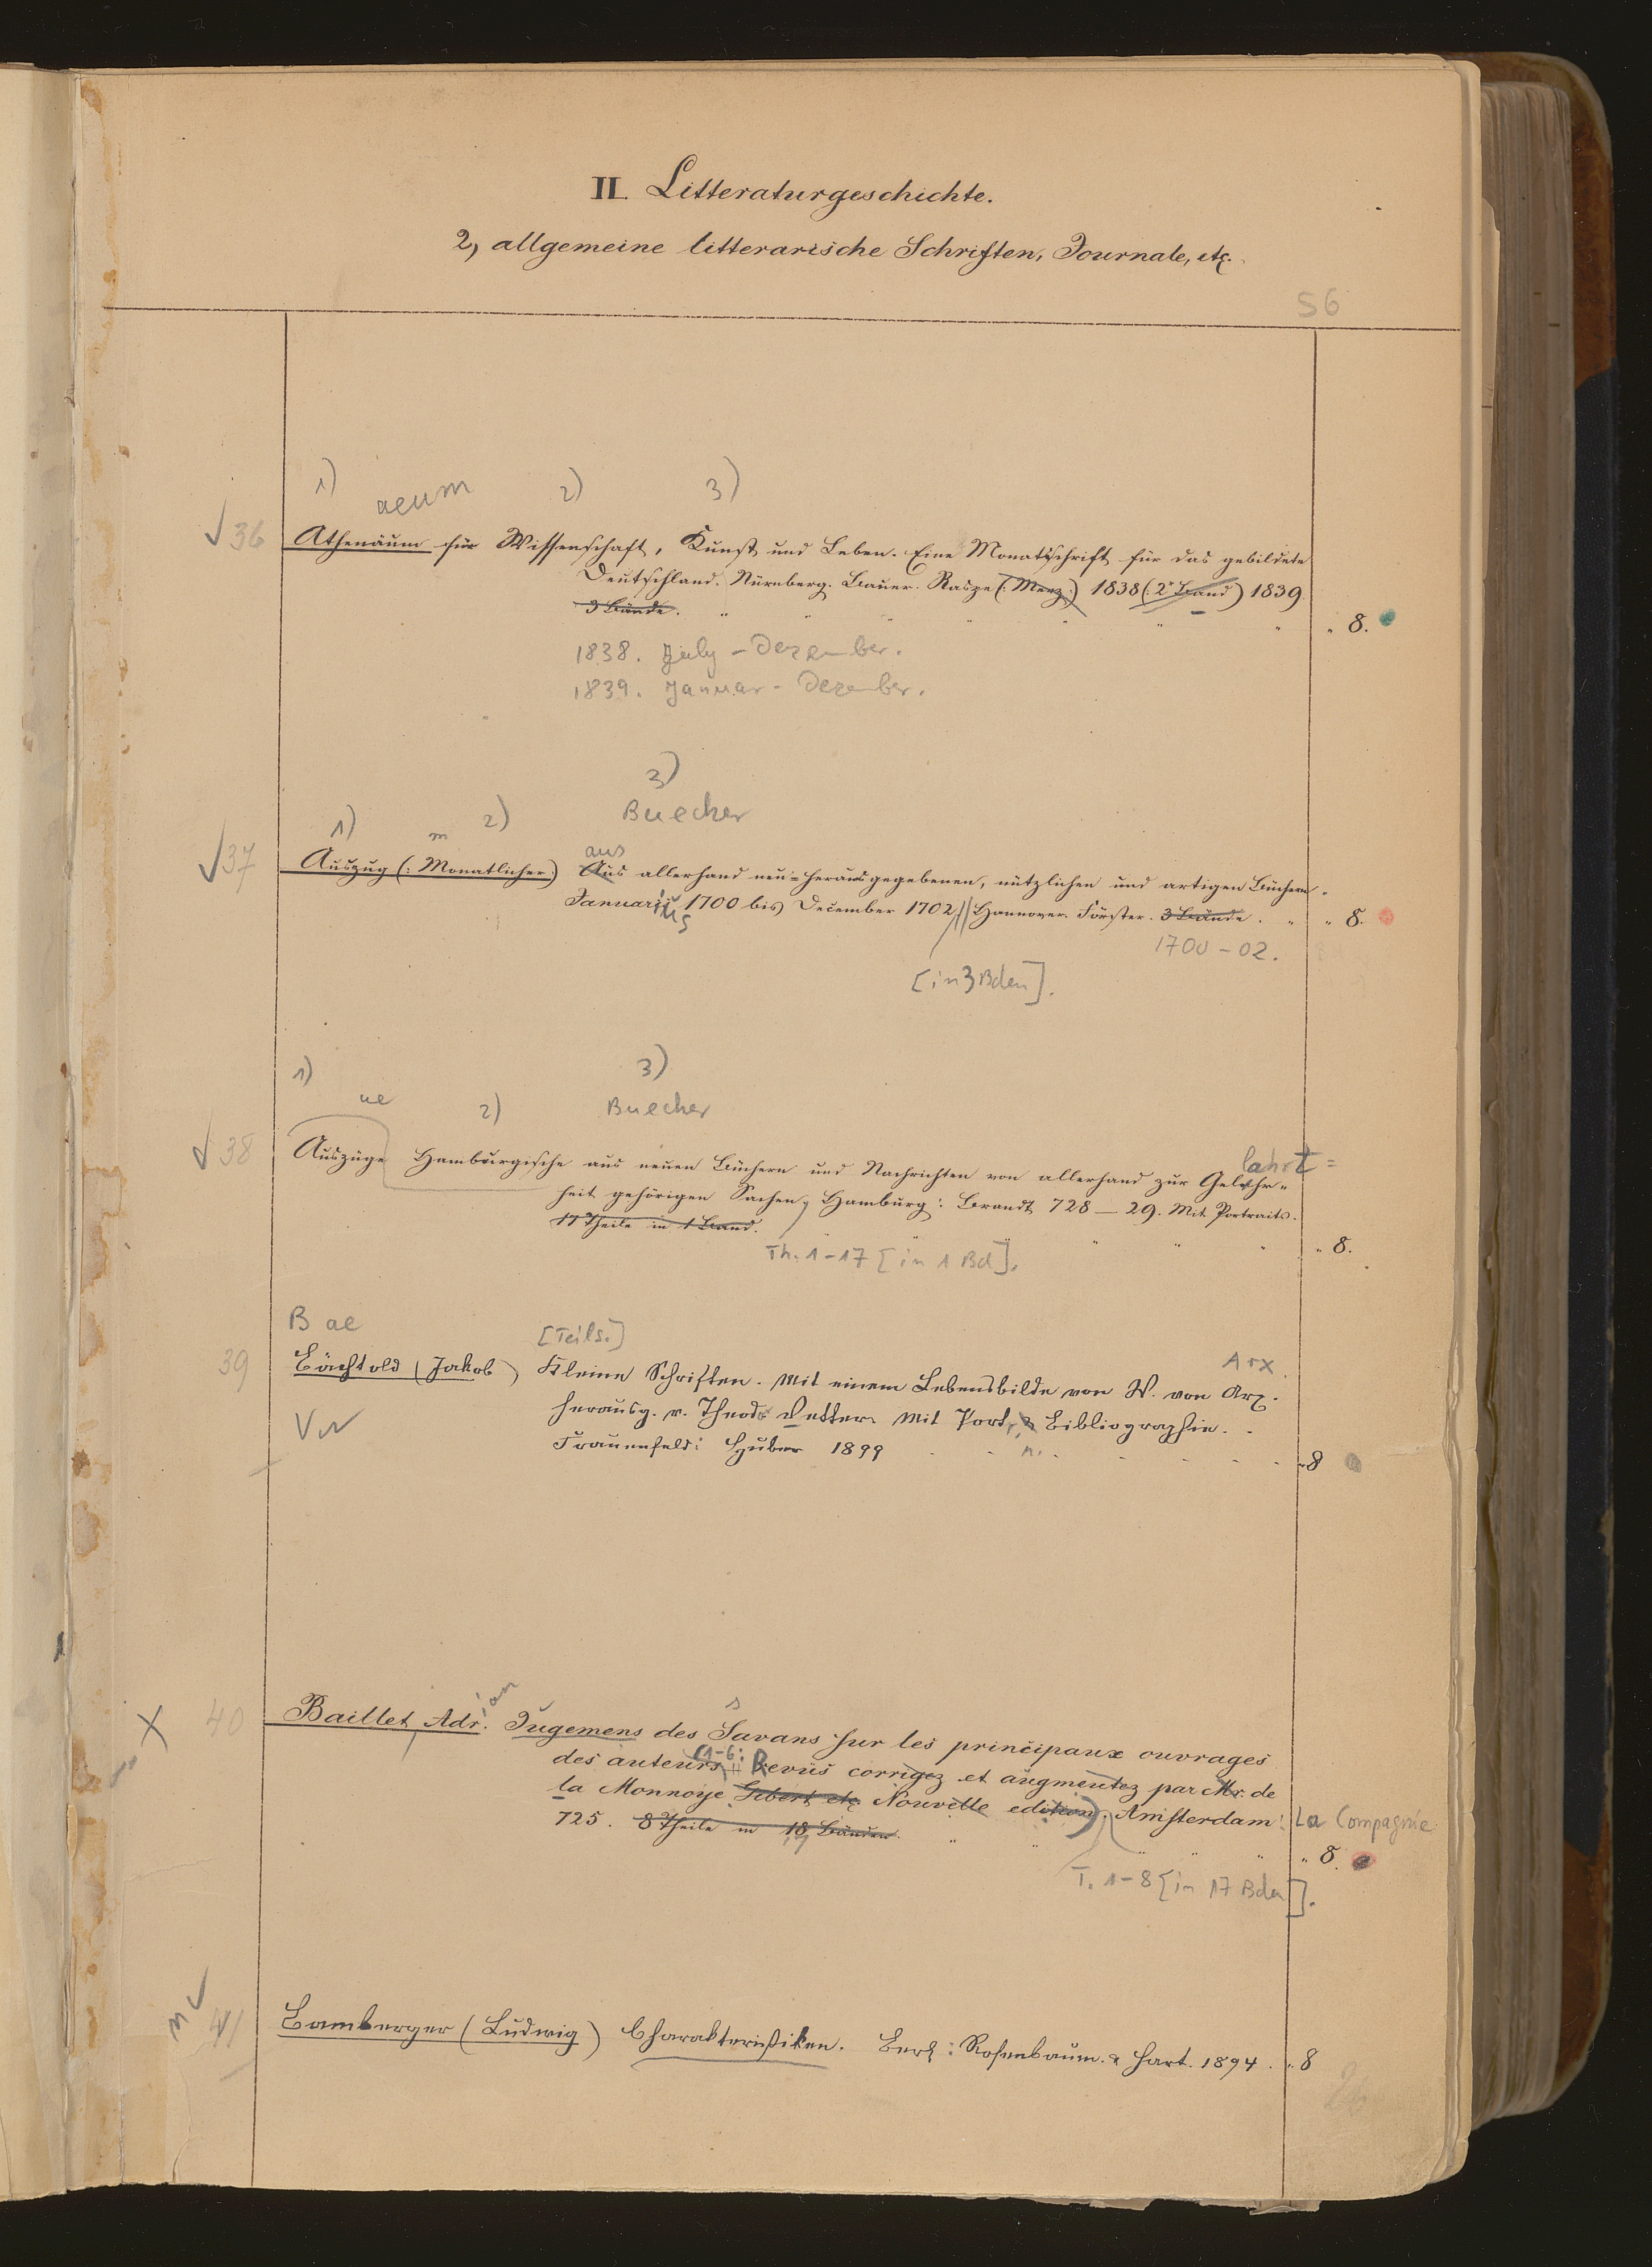 II. Litteraturgeschichte.
2, allgemeine litterarische Schriften, Journale, etc.
56
1) aeum 2) 3)
36 Athenäum für Wissenschaft, Kunst und Leben. Eine Monatsschrift für das gebildete
Deutschland. Nürnberg. Bauer. Raspe (: Merz :) 1838 (: 2r Band) 1839
3 Bände. " " " " " " " 8.
1838. July - Dezember.
1839. Januar - Dezember.
3)
1) m 2) Buecher
aus
37 Auszug (: Monatlicher:) Aus allerhand neu-herausgegebenen, nützlichen und artigen Büchern.
Januarius 1700 bis December 1702 // Hannover. Förster. 3 Bände. " " 8.
1700 - 02.
[in 3 Bden].
1) 3)
ue 2) Buecher
lahrt =
38 Auszüge Hamburgische aus neuen Büchern und Nachrichten von allerhand zur Gelehr-
heit gehörigen Sachen, Hamburg: Brandt 728 - 29. Mit Portraits.
17 Theile in 1 Band. " " " " " 8.
Th. 1-17 [in 1 Bd].
B ae [Teils.] Arx
39 Bächtold (Jakob) Kleine Schriften. Mit einem Lebensbilde von W. von Arx.
herausg. v. Theodor Vetter. Mit Portr. & Bibliographie.
Frauenfeld: Huber 1899 "8
ian s
40 Baillet, Adr. Jugemens des Savans sur les principaux ouvrages
des auteurs (1-6: Revus corrigez et augmentez par Mr. de
la Monnoye Nouvelle edition). Amsterdam: La Compagnie
725. 8 Theile in 18 Bänden. " " " " " 8.
17
T. 1-8 [in 17 Bden].
41 Bamberger (Ludwig) Charakteristiken. Berl: Rosenbaum & Hart. 1894. " 8